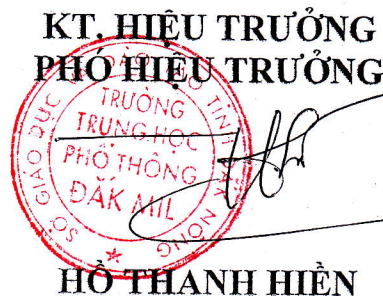 KT. HIỆU TRƯỞNG
PHÓ HIỆU TRƯỞNG
SỞ GIÁO DỤC VÀ ĐÀO TẠO TỈNH ĐẮK NÔNG
TRƯỜNG
TRUNG HỌC
PHỔ THÔNG
ĐĂK MIL
HỒ THANH HIỀN